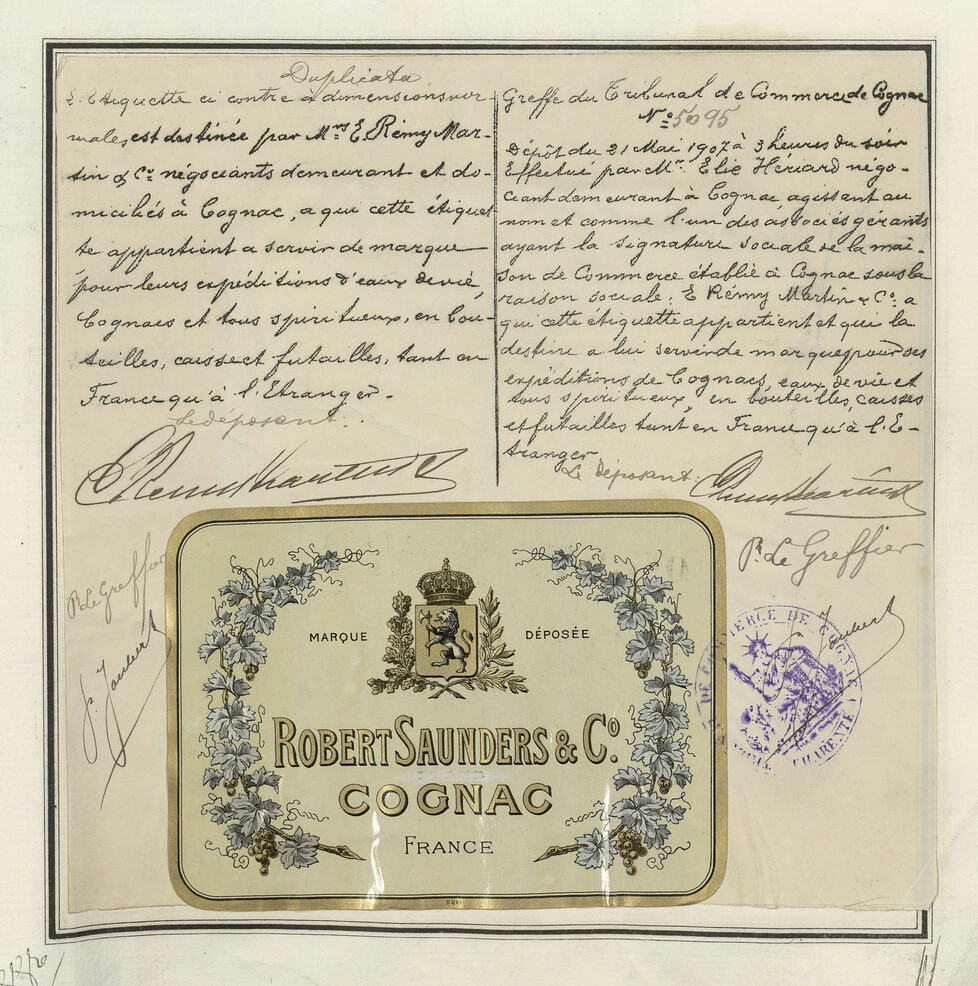 Duplicata
L'Etiquette ci contre à dimensions nor-
males est destinée par Mrs E. Rémy Mar-
tin & Cie négociants demeurant et do-
miciliés à Cognac, a qui cette étiquet-
te appartient a servir de marque
pour leurs expéditions d'eaux de vie,
Cognacs et tous spiritueux, en bou-
teilles, caisses et futailles, tant en
France qu'à l'Etranger.
Le déposant.
E Remy Martin & Co
Pr Le Greffier
Joubert
Greffe du Tribunal de Commerce de Cognac
No 5095
Dépôt du 21 Mai 1907 à 3 heures du soir
Effectué par Mr. Elie Hériard négo-
ciant demeurant à Cognac, agissant au
nom et comme l'un des associés gérants
ayant la signature sociale de la mai-
son de Commerce établie à Cognac sous la
raison sociale: E Rémy Martin & Co. a
qui cette étiquette appartient et qui la
destine a lui servir de marques pour ses
expéditions de Cognacs, eaux de vie et
tous spiritueux, en bouteilles, caisses
et futailles tant en France qu'à l'E-
tranger
Le déposant.
E Remy Martin & Co
Pr Le Greffier
Joubert
DE COMMERCE DE COGNAC
CHARENTE
MARQUE DÉPOSÉE
ROBERT SAUNDERS & Co.
COGNAC
FRANCE